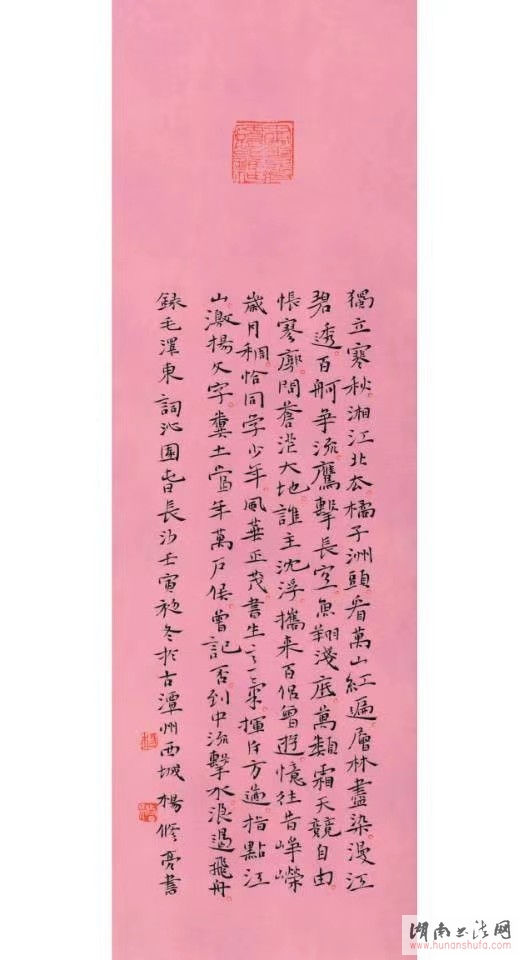 獨立寒秋。湘江北去。橘子洲頭。看萬山紅遍。層林盡染。漫江
碧透。百舸爭流。鷹擊長空。魚翔淺底。萬類霜天競自由。
悵寥廓。問蒼茫大地。誰主沈浮。攜來百侶曾遊。憶往昔崢嶸
歲月稠。恰同学少年。風華正茂。書生意氣。揮斥方遒。指點江
山。激揚文字。糞土當年萬戶侯。曾記否。到中流擊水。浪遏飛舟。
錄毛澤東詞沁園春長沙壬寅初冬於古潭州西城楊修亮書
湖南书法网
www.hunanshufa.com